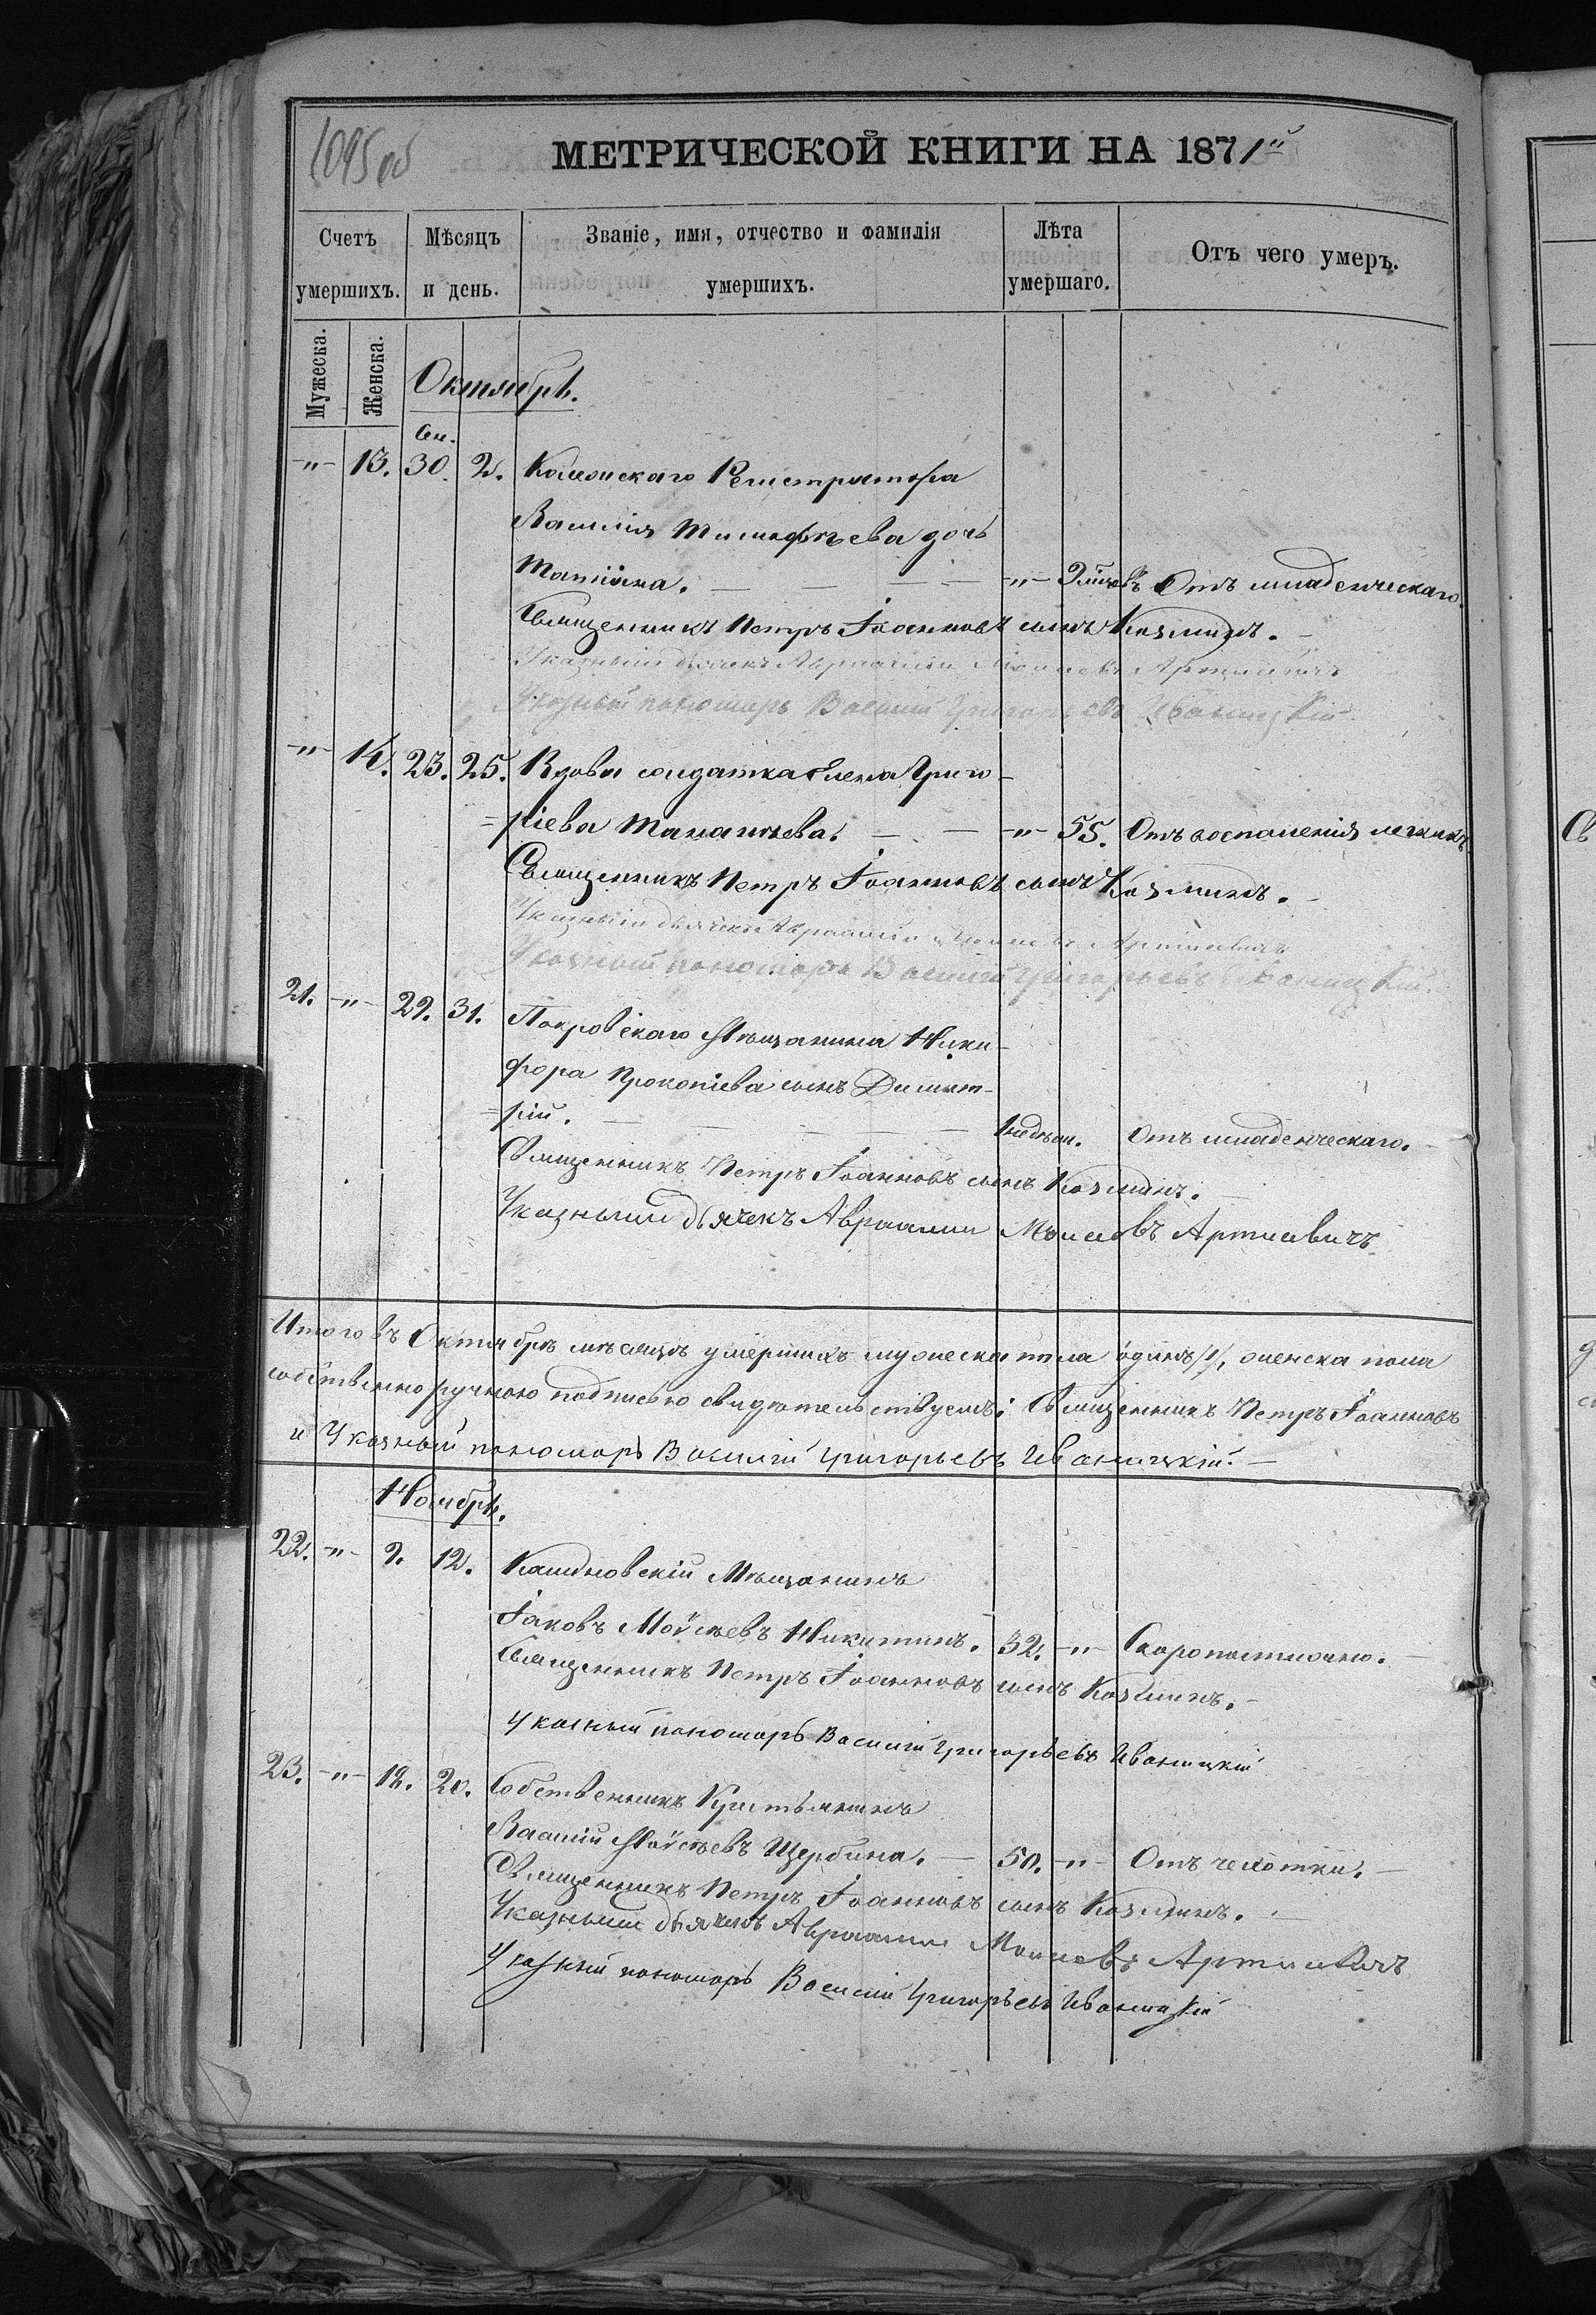 1095 об
МЕТРИЧЕСКОЙ КНИГИ НА 1871й
Счетъ умершихъ.
Мѣсяцъ и день.
Званіе, имя, отчество и фамилія умершихъ.
Лѣта умершаго.
Отъ чего умеръ.
Мужеска.
Женска.
Октябрь.
Сен.
-"- 13. 30. 2. Коллежскаго Регистратора
Василія Тимофѣева дочь
Татіана. -"- Отъ младенческаго.
Священникъ Петръ Іоанновъ сынъ Козминъ.
Указный дьячекъ Авраамій Моисеевъ
Указный пономарь Василій Григорьевъ Иваницкій
-"- 14. 23. 25. Вдова солдатка Елена Григо-
=ріева Манантьева. -"- 55. Отъ воспаленія легкихъ
Священникъ Петръ Іоанновъ сынъ Козминъ.
Указный дьячекъ Авраамій
Указный пономарь Василій Григорьевъ Иваницкій.
21. -"- 29. 31. Покровскаго Мѣщанина Ники-
фора Прокопіева сынъ Димит-
=рій. недѣли. Отъ младенческаго.
Священникъ Петръ Іоанновъ сынъ Козминъ.
Указный дьячекъ Авраамій Моисеевъ
Итого въ Октябрѣ мѣсяцѣ умершихъ мужеска пола одинъ /1/, женска пола
собственноручною подписью свидѣтельствуемъ: Священникъ Петръ Іоанновъ
и Указный пономарь Василій Григорьевъ Иваницкій.
Ноябрь.
22. -"- 9. 12. Мѣщанинъ
Іаковъ Моѵсеевъ Никитинъ. 32. -"- Скоропостижно.
Священникъ Петръ Іоанновъ сынъ Козминъ.
Указный пономарь Василій Григорьевъ Иваницкій
23. -"- 18. 20. Собственникъ Крестьянинъ
Василій Моѵсеевъ Щербина. 50. -"- Отъ чахотки.
Священникъ Петръ Іоанновъ сынъ Козминъ.
Указный дьячекъ Авраамій Моисеевъ
Указный пономарь Василій Григорьевъ Иваницкій